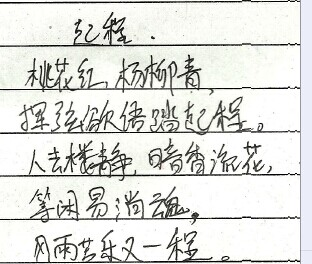 起程.
桃花红,杨柳青,
挥弦欲语踏起程。
人去楼静,暗香流花,
等闲易消魂,
风雨苦乐又一程。